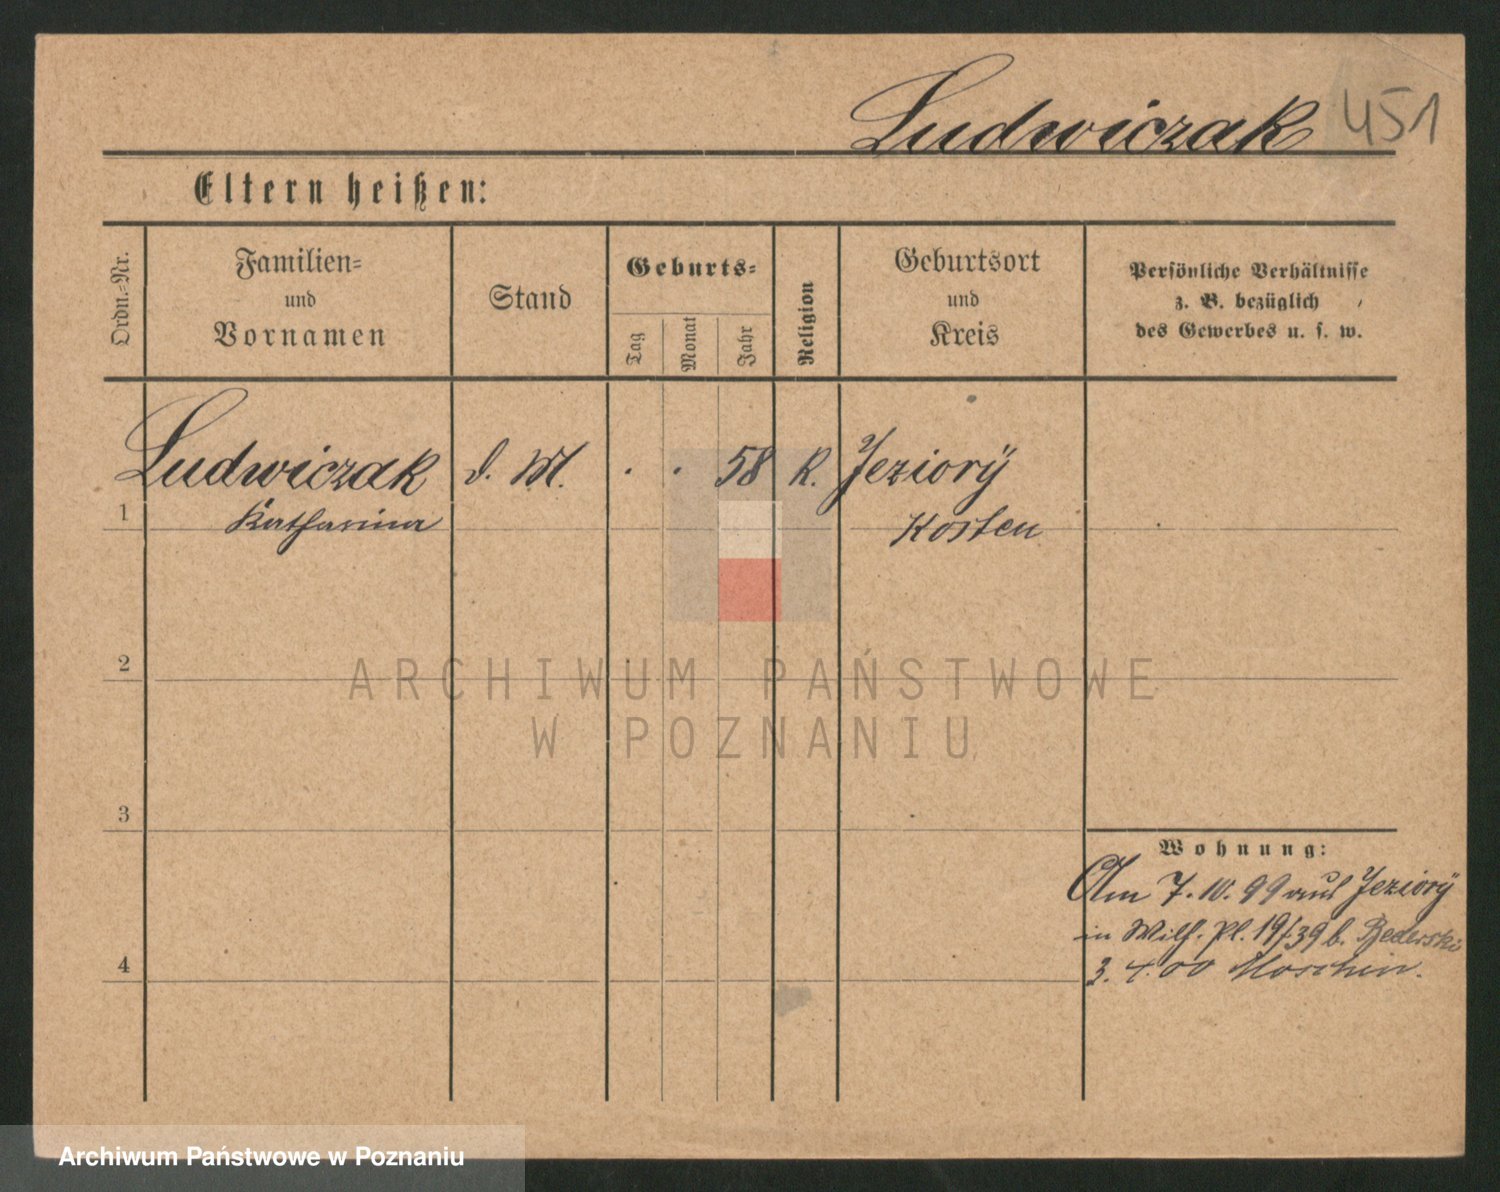 Ludwiczak 451
Eltern heißen:
Ordn.-Nr.
Familien-
und
Vornamen
Stand
Geburts-
Tag
Monat
Jahr
Religion
Geburtsort
und
Kreis
Persönliche Verhältnisse
z. B. bezüglich
des Gewerbes u. s. w.
1
Ludwiczak
Katharina
d. M.
. . 58
K.
Jeziory
Kosten
2
3
4
Wohnung:
Am 7. 10. 99 aus Jeziory
in Wilh. Pl. 19/39 b. Bederski
3. 4. 00 Moschin.
ARCHIWUM PAŃSTWOWE
W POZNANIU
Archiwum Państwowe w Poznaniu